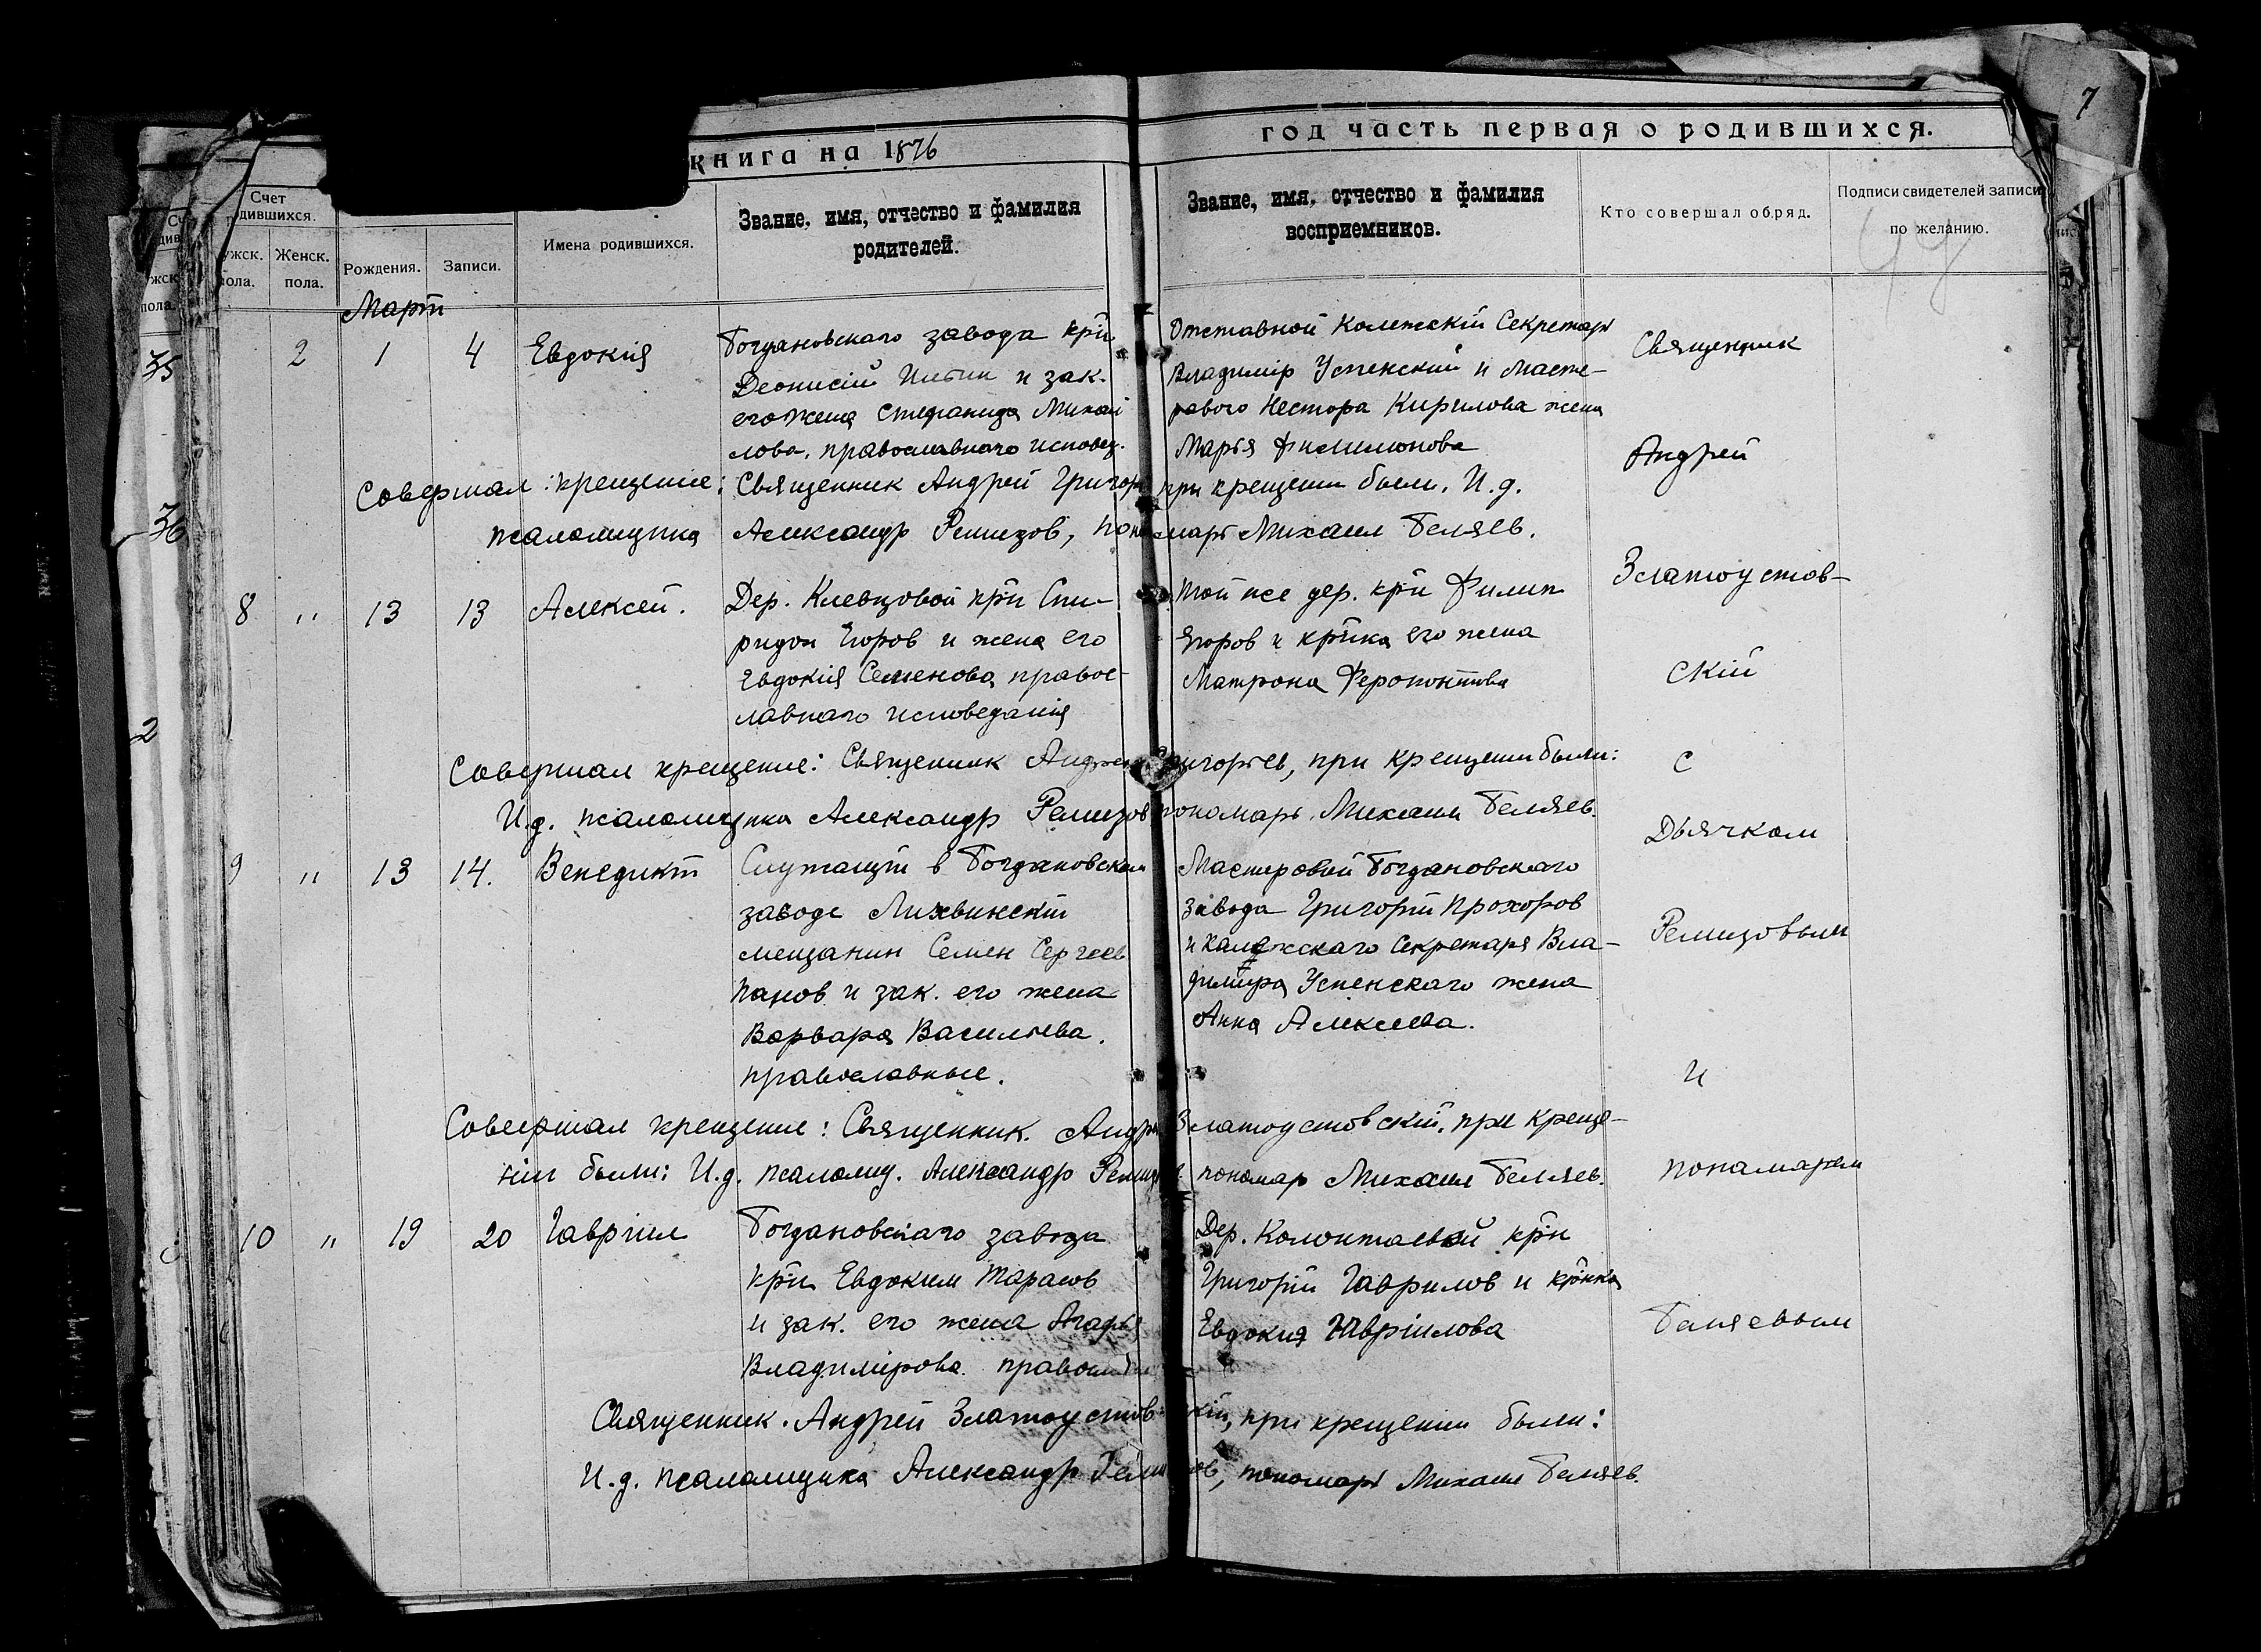 7
книга на 1876
год часть первая о родившихся.
Счет
дившихся.
ужск.
пола.
Женск.
пола.
Рождения.
Записи.
Имена родившихся.
Звание, имя, отчество и фамилия
родителей.
Звание, имя, отчество и фамилия
восприемников.
Кто совершал обряд.
Подписи свидетелей записи
по желанию.
Март
2 1 4 Евдокія
Богдановскаго завода кр̃и
Деонисій Ильин и зак.
его жена Стефанида Михай
лова, православнаго исповед.
Отставной Колежскій Секретарь
Владимір Успенский и Масте-
рового Нестора Кирилова жена
Марья Филимонова
Совершал крещение: Священник Андрей Григорь при крещении были. И.д.
псаломщика Александр Ремизов, пономарь Михаил Беляев.
8 " 13 13 Алексей.
Дер. Клевцовой кр̃и Спи-
ридон Егоров и жена его
Евдокія Семенова правос-
лавнаго исповеданія
той же дер. кр̃и Филип
Егоров и кр̃нка его жена
Матрона Ферапонтова
Совершал крещение: Священник Андрей Григорьев, при крещении были:
И.д. псаломщика Александр Ремизов пономарь Михаил Беляев.
9 " 13 14. Венедикт
Служащій в Богдановском
заводе Лихвинскій
мещанин Семен Сергеев
Панов и зак. его жена
Варвара Васильева.
православные.
Мастеровой Богдановскаго
завода Григорій Прохоров
и Калежскаго Секретаря Вла-
диміра Успенскаго жена
Анна Алексеева.
Совершал крещение: Священник. Андрей Златоустовскій, при креще-
ніи были: И.д. псаломщ. Александр Ремизов. пономар Михаил Беляев.
10 " 19 20 Гавріил
Богдановскаго завода
кр̃и Евдоким Тарасов
и зак. его жена Агафья
Владимірова
Дер. Колонтаевой кр̃и
Григорій Гаврилов и кр̃нка
Евдокия Гавріилова
Священник. Андрей Златоустовскій, при крещении были:
И.д. псаломщика Александр Ремизов, пономарь Михаил Беляев.
Священник
Андрей
Златоустов-
скій
с
Дьячком
Ремизовым
и
понамарем
Беляевым
35
36
2